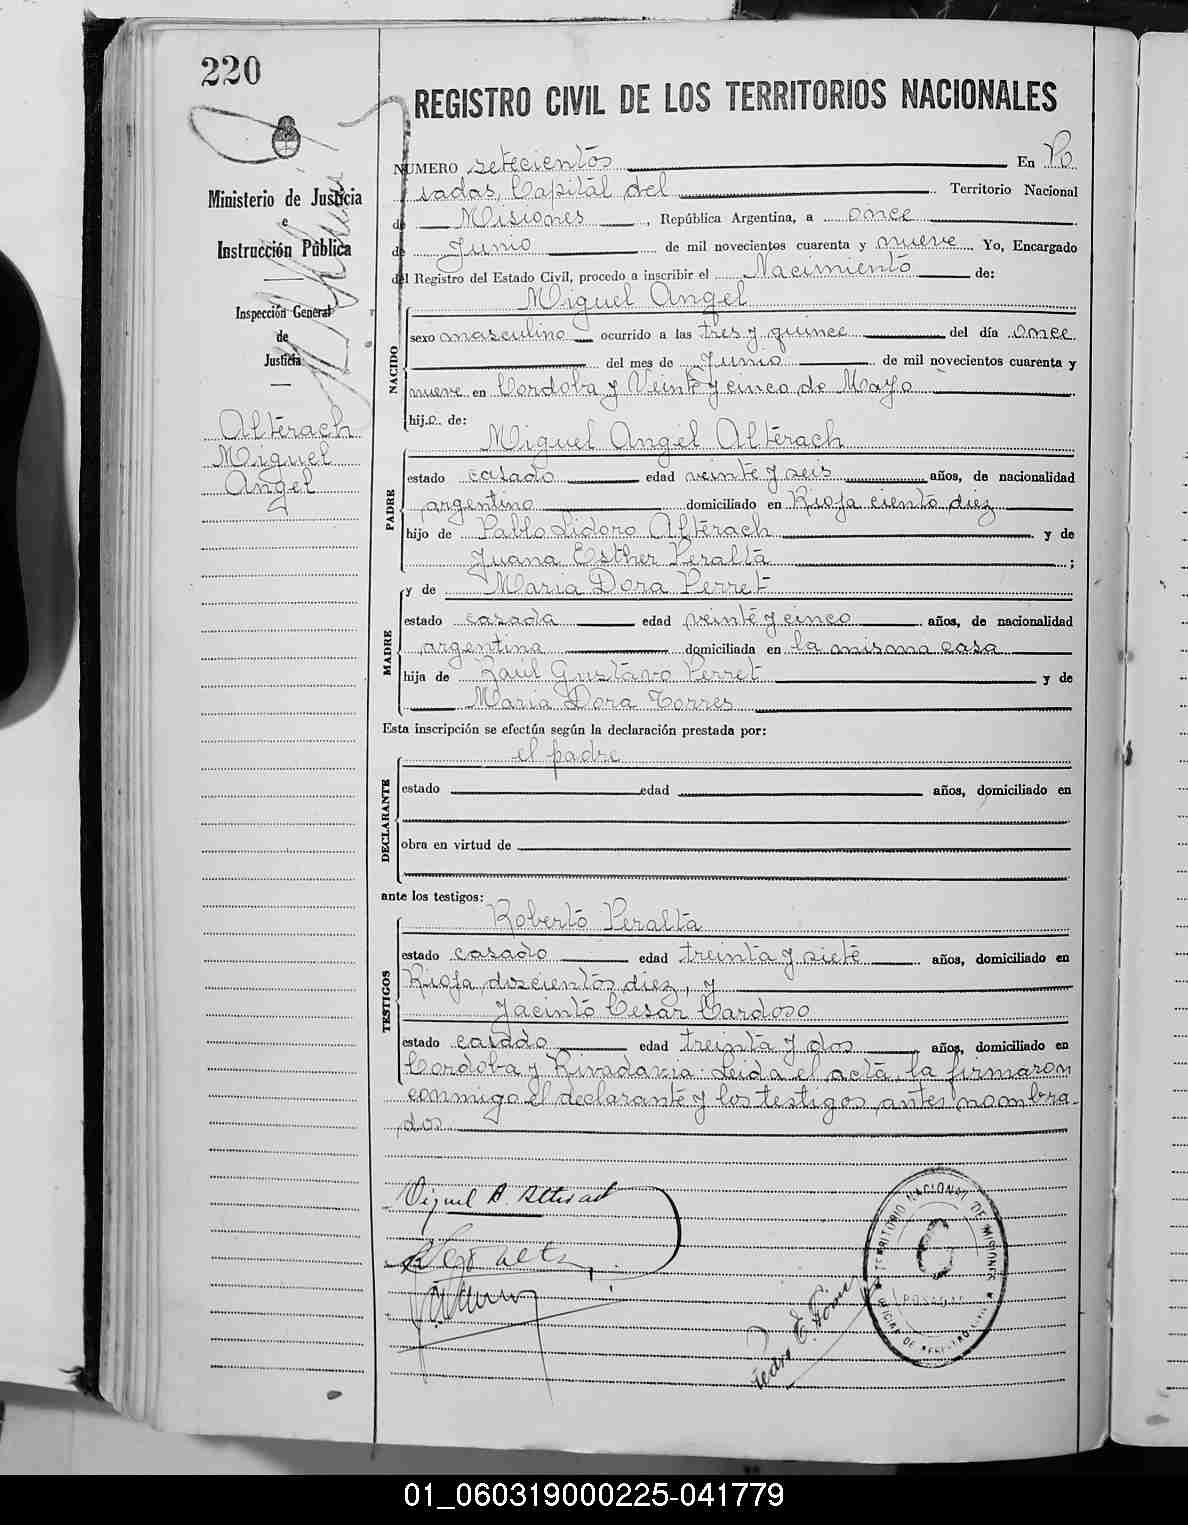 220
REGISTRO CIVIL DE LOS TERRITORIOS NACIONALES
Ministerio de Justicia
e
Instrucción Pública
Inspección General
de
Justicia
Alterach
Miguel
Angel
NUMERO setecientos En Po
sadas, Capital del Territorio Nacional
de Misiones, República Argentina, a once
de Junio de mil novecientos cuarenta y nueve Yo, Encargado
del Registro del Estado Civil, procedo a inscribir el Nacimiento de:
NACIDO
Miguel Angel
sexo masculino ocurrido a las tres y quince del día once
del mes de Junio de mil novecientos cuarenta y
nueve en Cordoba y Veinte y cinco de Mayo
hijo de:
PADRE
Miguel Angel Alterach
estado casado edad veinte y seis años, de nacionalidad
argentino domiciliado en Rioja ciento diez
hijo de Pablo Lidoro Alterach y de
Juana Esther Peralta ;
MADRE
y de Maria Dora Perret
estado casada edad veinte y cinco años, de nacionalidad
argentina domiciliada en la misma casa
hija de Raúl Gustavo Perret y de
Maria Dora Torres
Esta inscripción se efectúa según la declaración prestada por:
DECLARANTE
el padre
estado edad años, domiciliado en
obra en virtud de
ante los testigos:
TESTIGOS
Roberto Peralta
estado casado edad treinta y siete años, domiciliado en
Rioja doscientos diez, y
Jacinto Cesar Cardoso
estado casado edad treinta y dos años, domiciliado en
Cordoba y Rivadavia. Leida el acta, la firmaron
conmigo el declarante y los testigos antes nombra-
dos
Miguel A. Alterach
R Peralta
Pedro E.
TERRITORIO NACIONAL DE MISIONES
POSADAS
OFICINA DE REGISTRO CIVIL
01_060319000225-041779